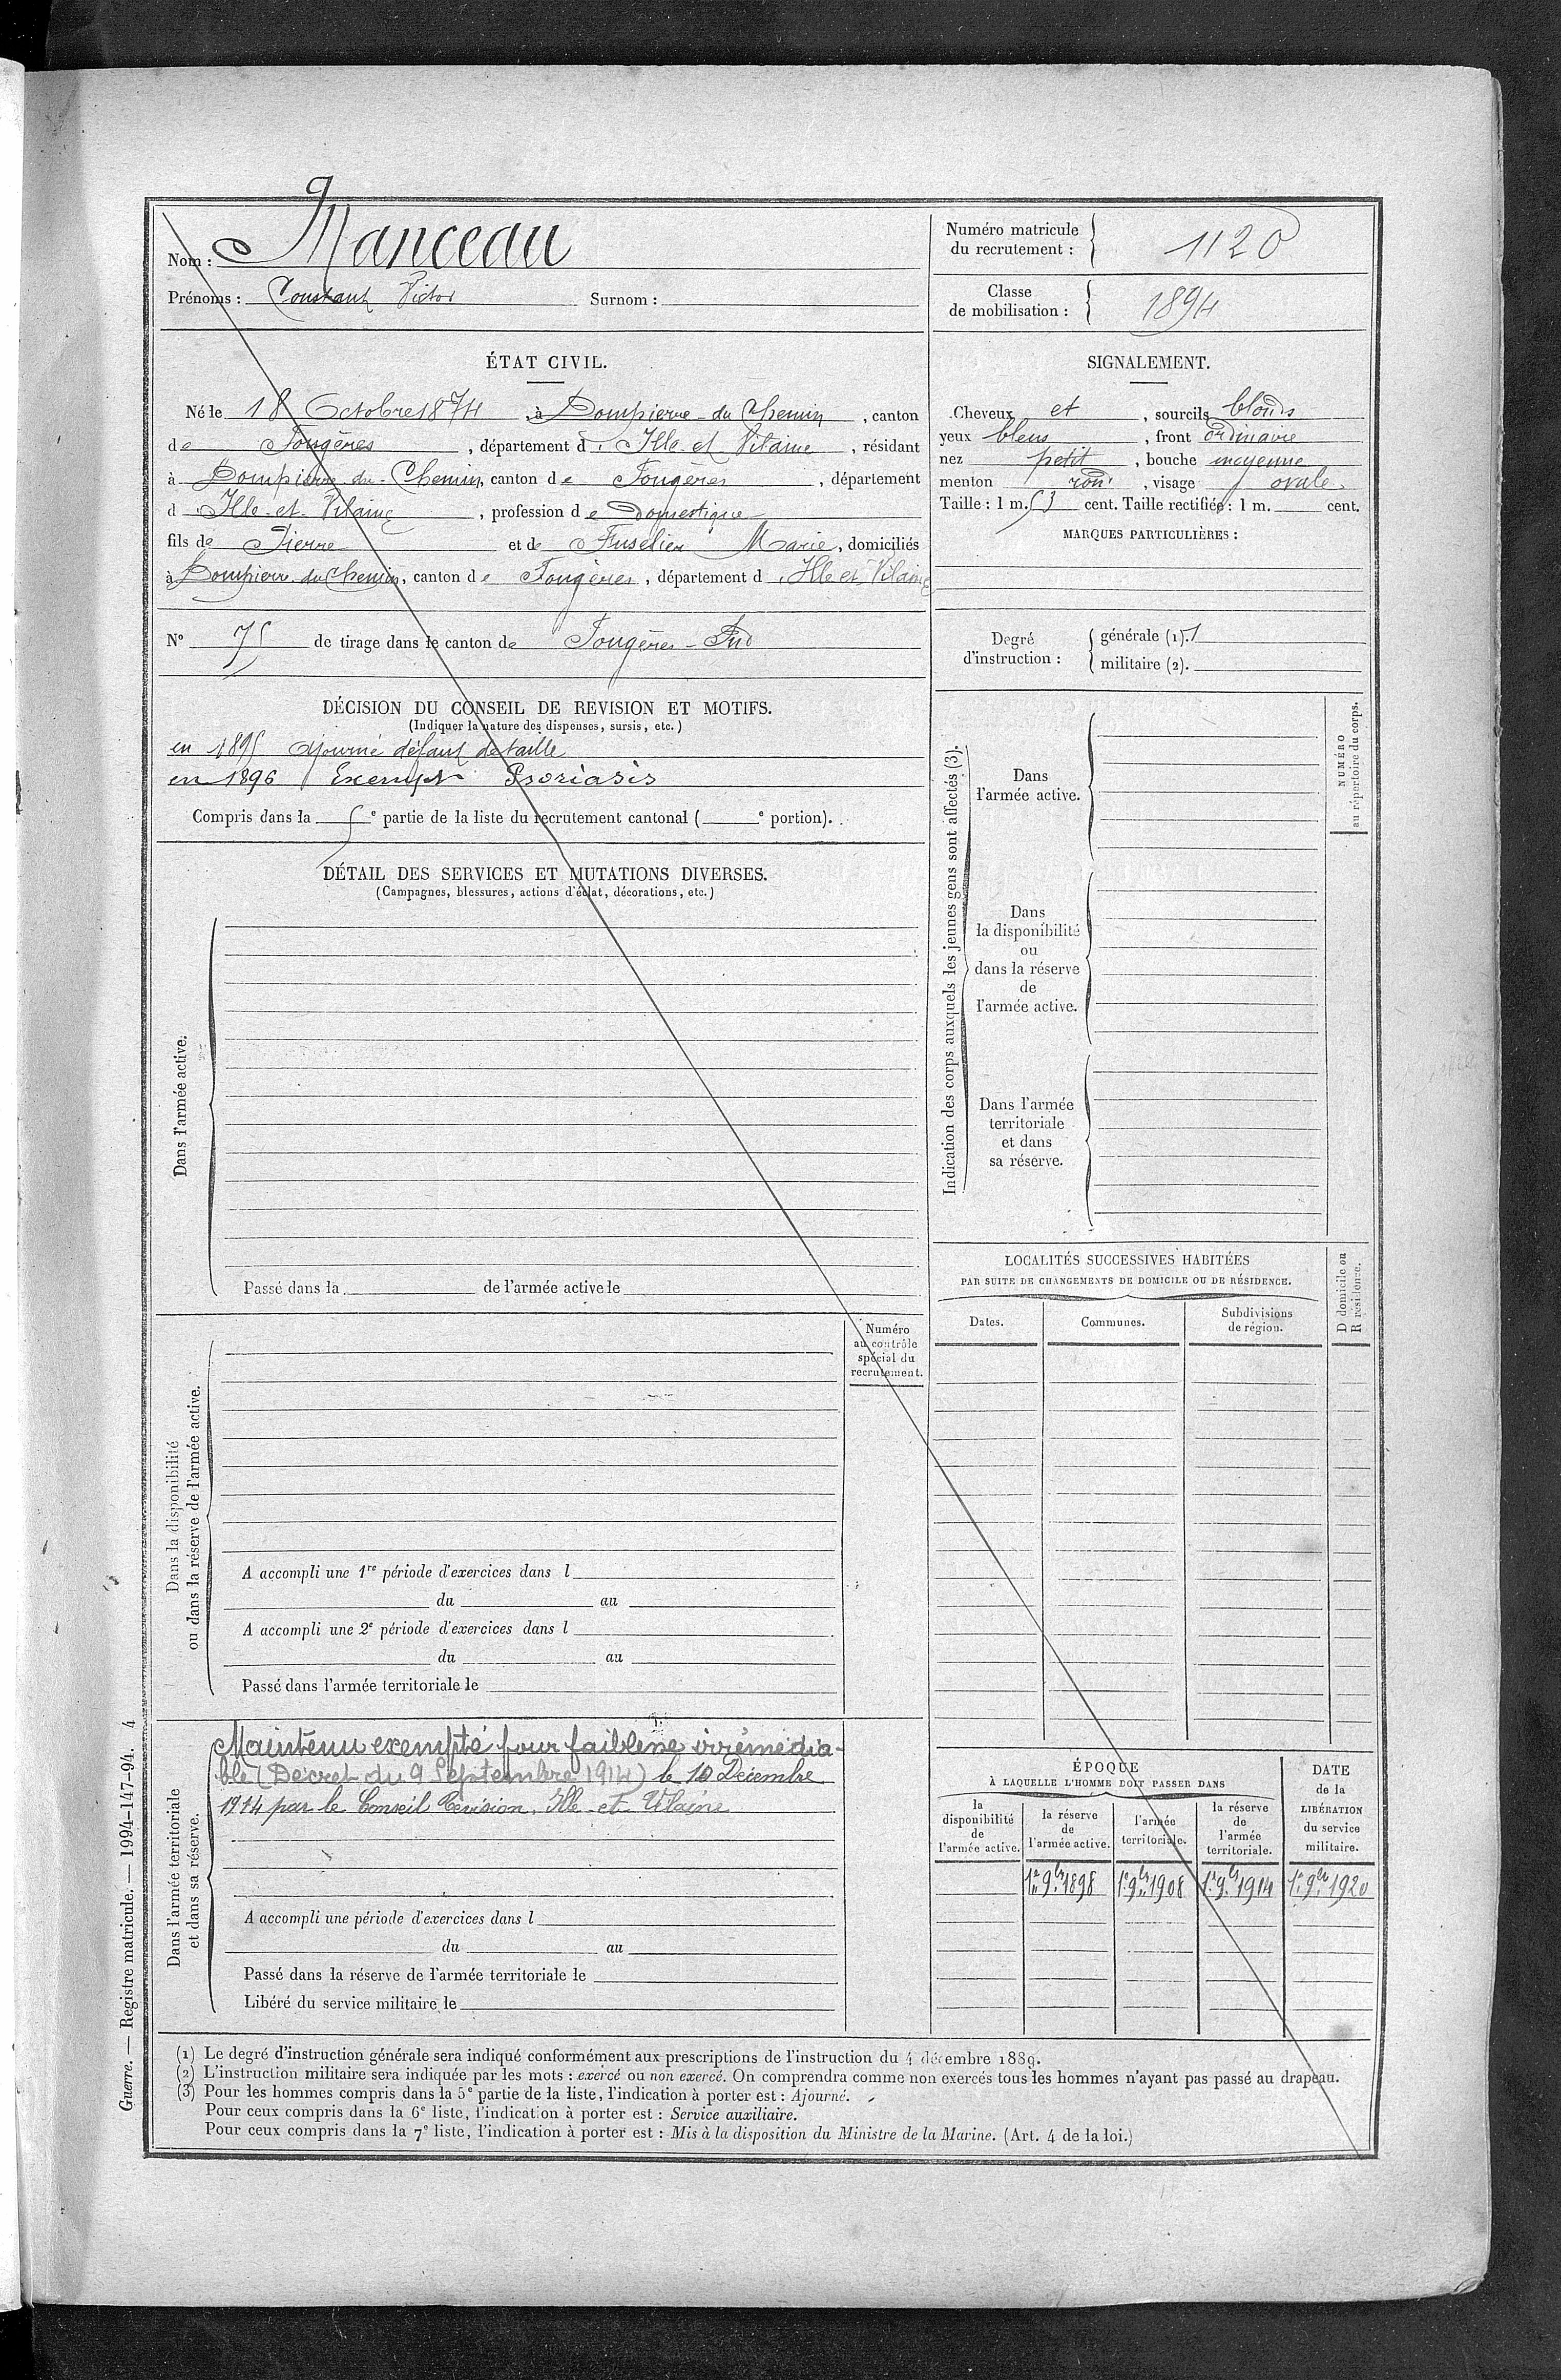 Nom : Manceau
Prénoms : Constant Victor Surnom :
Numéro matricule
du recrutement : 1120
Classe
de mobilisation : 1894
ÉTAT CIVIL.
Né le 18 Octobre 1874, à Dompierre-du-Chemin, canton
de Fougères, département d'Ille-et-Vilaine, résidant
à Dompierre-du-Chemin, canton de Fougères, département
d'Ille-et-Vilaine, profession de domestique
fils de Pierre et de Fuselier Marie, domiciliés
à Dompierre du Chemin, canton de Fougères, département d'Ille et Vilaine
N° 75 de tirage dans le canton de Fougères-Sud
DÉCISION DU CONSEIL DE REVISION ET MOTIFS.
(Indiquer la nature des dispenses, sursis, etc.)
en 1895 Ajourné défaut de taille
en 1896 Exempt Psoriasis
Compris dans la 5e partie de la liste du recrutement cantonal ( e portion).
SIGNALEMENT.
Cheveux et, sourcils blonds
yeux bleus, front ordinaire
nez petit, bouche moyenne
menton rond, visage ovale
Taille : 1 m. 53 cent. Taille rectifiée : 1 m. cent.
MARQUES PARTICULIÈRES :
Degré
d'instruction :
générale (1). 1
militaire (2).
DÉTAIL DES SERVICES ET MUTATIONS DIVERSES.
(Campagnes, blessures, actions d'éclat, décorations, etc.)
Dans l'armée active.
Passé dans la de l'armée active le
Indication des corps auxquels les jeunes gens sont affectés (3).
Dans
l'armée active.
Dans
la disponibilité
ou
dans la réserve
de
l'armée active.
Dans l'armée
territoriale
et dans
sa réserve.
NUMÉRO
au répertoire du corps.
Dans la disponibilité
ou dans la réserve de l'armée active.
Numéro
au contrôle
spécial du
recrutement.
A accompli une 1re période d'exercices dans l
du au
A accompli une 2e période d'exercices dans l
du au
Passé dans l'armée territoriale le
LOCALITÉS SUCCESSIVES HABITÉES
PAR SUITE DE CHANGEMENTS DE DOMICILE OU DE RÉSIDENCE.
Dates.
Communes.
Subdivisions
de région.
D domicile ou
R résidence.
Dans l'armée territoriale
et dans sa réserve.
Maintenu exempté pour faiblesse irrémédia-
ble (Décret du 9 Septembre 1914) le 10 Décembre
1914 par le Conseil Revision, Ille-et-Vilaine
A accompli une période d'exercices dans l
du au
Passé dans la réserve de l'armée territoriale le
Libéré du service militaire le
ÉPOQUE
À LAQUELLE L'HOMME DOIT PASSER DANS
la
disponibilité
de
l'armée active.
la réserve
de
l'armée active.
l'armée
territoriale.
la réserve
de
l'armée
territoriale.
DATE
de la
LIBÉRATION
du service
militaire.
1er 9bre 1898
1er 9bre 1908
1er 9bre 1914
1er 9bre 1920
(1) Le degré d'instruction générale sera indiqué conformément aux prescriptions de l'instruction du 4 décembre 1889.
(2) L'instruction militaire sera indiquée par les mots : exercé ou non exercé. On comprendra comme non exercés tous les hommes n'ayant pas passé au drapeau.
(3) Pour les hommes compris dans la 5e partie de la liste, l'indication à porter est : Ajourné.
Pour ceux compris dans la 6e liste, l'indication à porter est : Service auxiliaire.
Pour ceux compris dans la 7e liste, l'indication à porter est : Mis à la disposition du Ministre de la Marine. (Art. 4 de la loi.)
Guerre. — Registre matricule. — 1994-147-94. 4